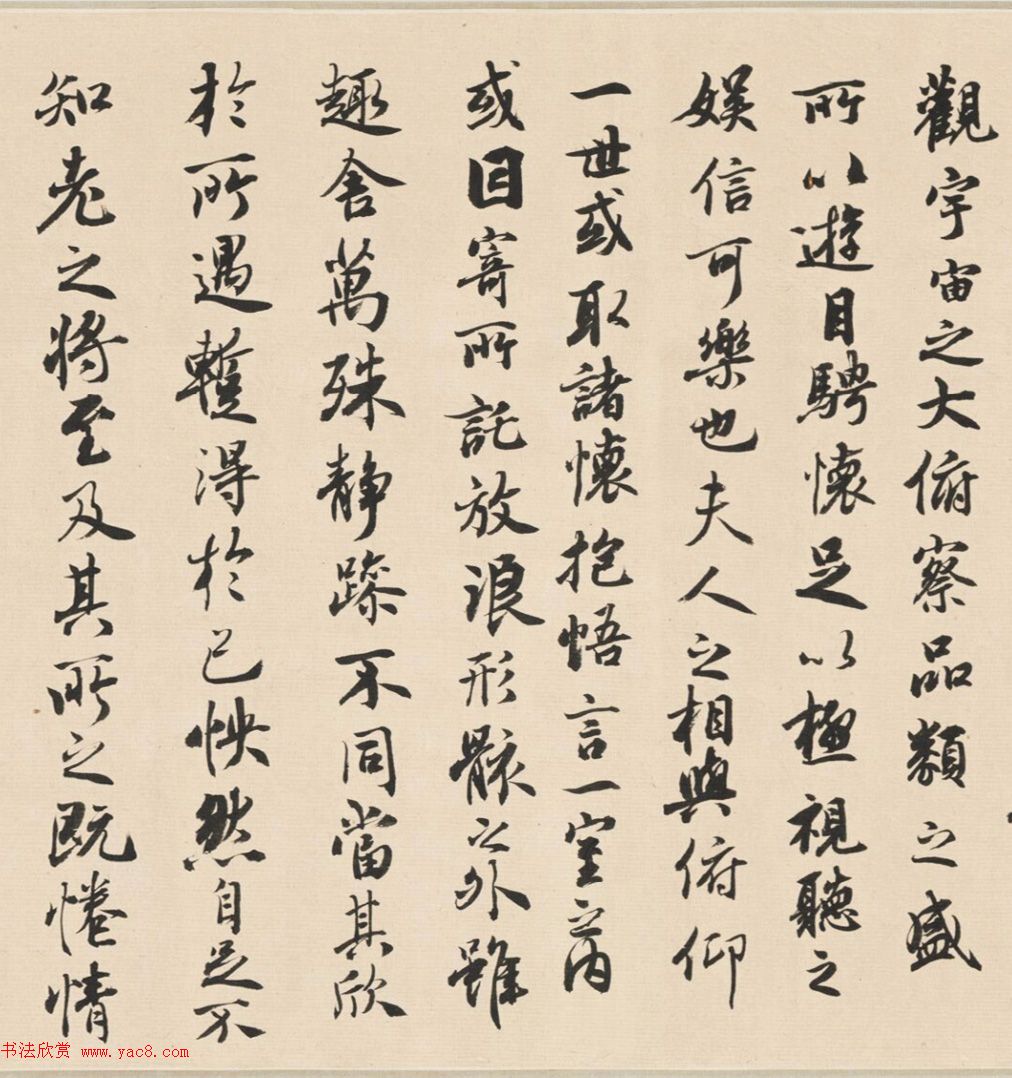 觀宇宙之大俯察品類之盛
所以遊目騁懷足以極視聽之
娛信可樂也夫人之相與俯仰
一世或取諸懷抱悟言一室之內
或因寄所託放浪形骸之外雖
趣舍萬殊靜躁不同當其欣
於所遇蹔得於己怏然自足不
知老之將至及其所之既惓情
书法欣赏 www.yac8.com